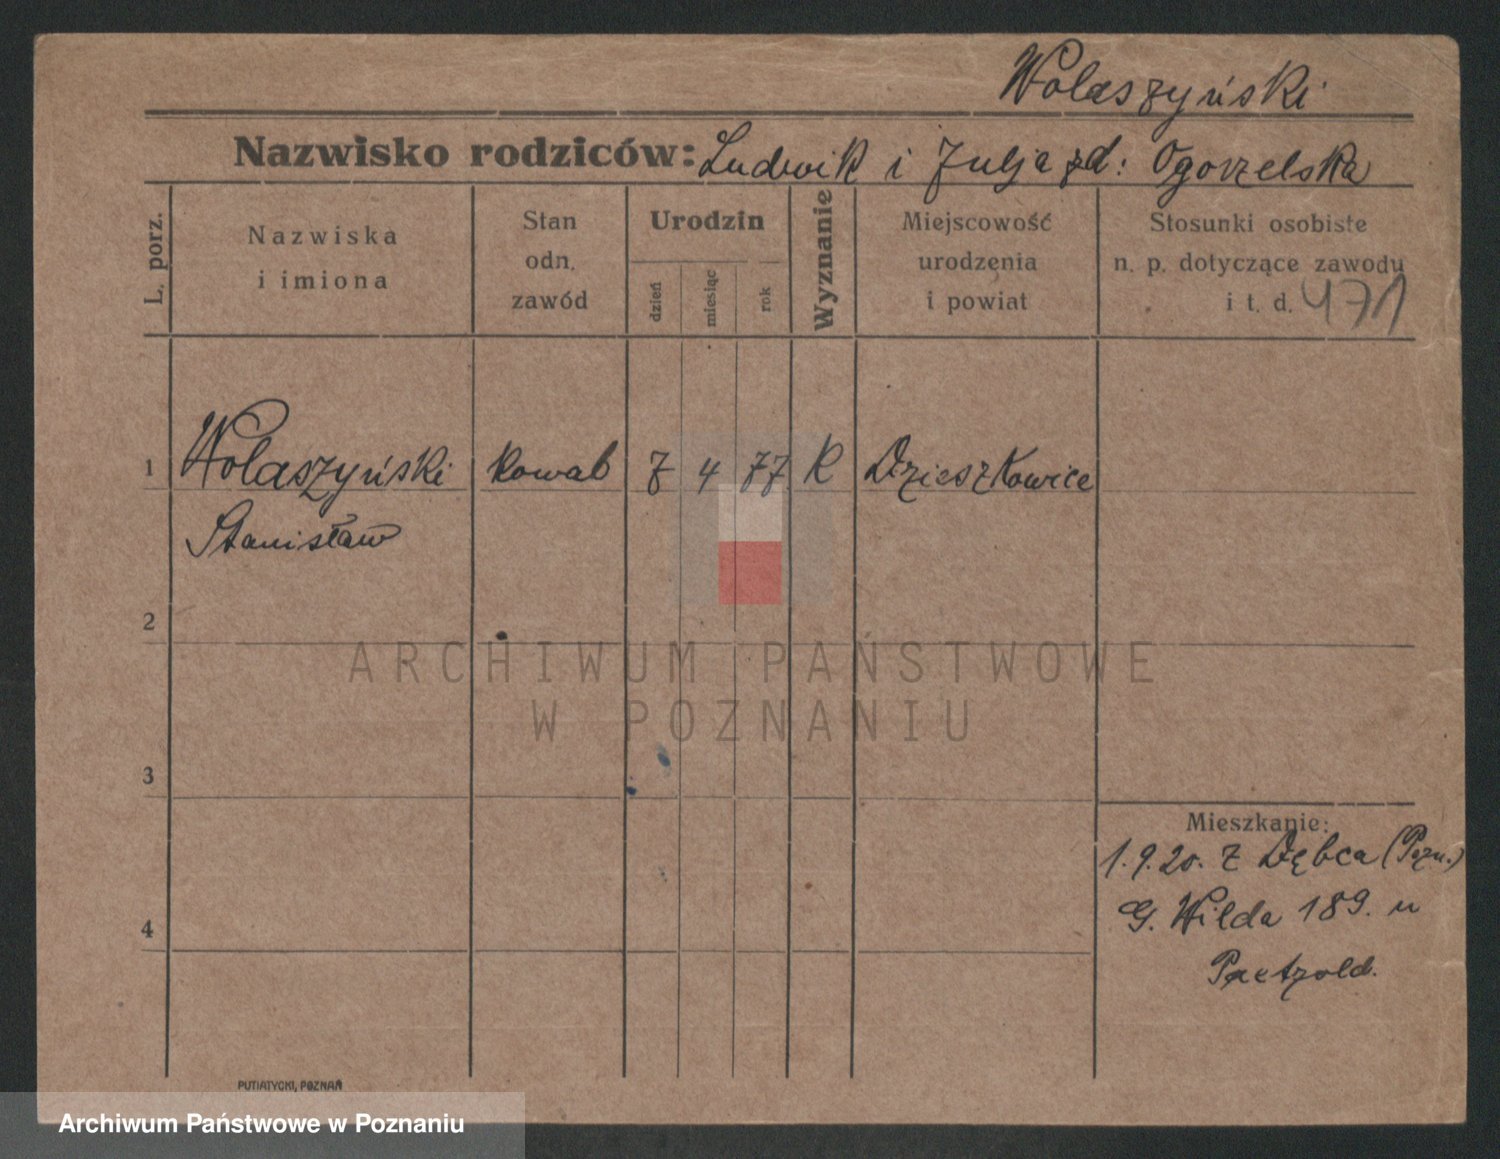 Wolaszyński
Nazwisko rodziców: Ludwik i Julja zd: Ogorzelska
L. porz.
Nazwiska
i imiona
Stan
odn.
zawód
Urodzin
dzień
miesiąc
rok
Wyznanie
Miejscowość
urodzenia
i powiat
Stosunki osobiste
n. p. dotyczące zawodu
i t. d. 471
1 Wolaszyński kowal 7 4 77 K Dzieszkowice
Stanisław
2
ARCHIWUM PAŃSTWOWE
W POZNANIU
3
Mieszkanie:
1.9.20. Z Dębca (Pozn.)
G. Wilda 189. u
4
Paetzold.
PUTIATYCKI, POZNAŃ
Archiwum Państwowe w Poznaniu